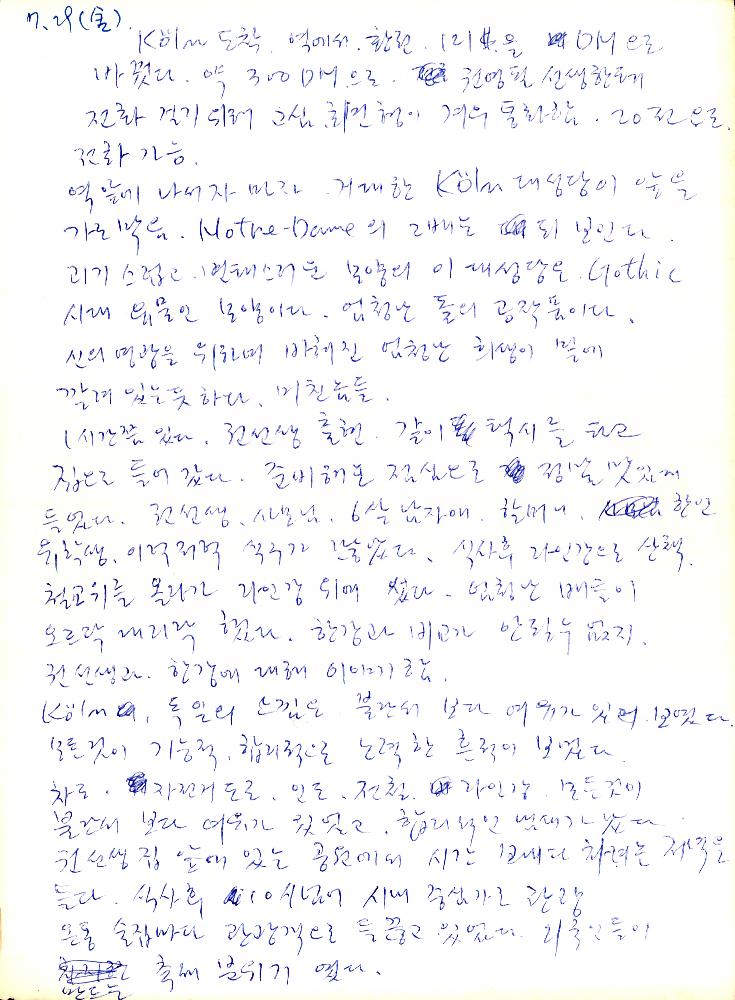 7. 29 (金).
Köln 도착. 역에서 환전. 을 DM으로
바꿨다. 약 300DM으로. 권영필 선생한테
전화 걸기 위해 고심. 이 겨우 통화함. 20전으로
전화 가능.
역앞에 나서자 마자 거대한 Köln 대성당이 앞을
가로막음. Notre-Dame의 2배는 되 보인다.
괴기스럽고 변태스러운 모양의 이 대성당은 Gothic
시대 유물인 모양이다. 엄청난 돌의 공작품이다.
신의 영광을 위하여 바쳐진 엄청난 희생이 밑에
깔려 있는듯 하다. 미친놈들.
1시간쯤 있다. 권선생 출현. 같이 택시를 타고
집으로 들어 갔다. 준비해논 점심으로 정말 맛있게
들었다. 권선생, 사모님, 6살 남자애, 할머니, 한인
유학생, 이럭저럭 식구가 많았다. 식사후 라인강으로 산책.
철교위를 올라가 라인강 위에 섰다. 엄청난 배들이
오르락 내리락 했다. 한강과 비교가 안될수 없지.
권선생과 한강에 대해 이야기함.
Köln, 독일의 느낌은 불란서 보다 여유가 있어 보였다.
모든것이 기능적, 합리적으로 노력한 흔적이 보였다.
차도, 자전거도로, 인도, 전철, 라인강, 모든것이
불란서 보다 여유가 있었고, 합리적인 냄새가 났다.
권선생집 앞에 있는 공원에서 시간 보내다 차려논 저녁을
들다. 식사후 10시넘어 시내 중심가로 관광
온통 술집마다 관광객으로 들끓고 있었다. 외국인들이
만드는 축제 분위기였다.